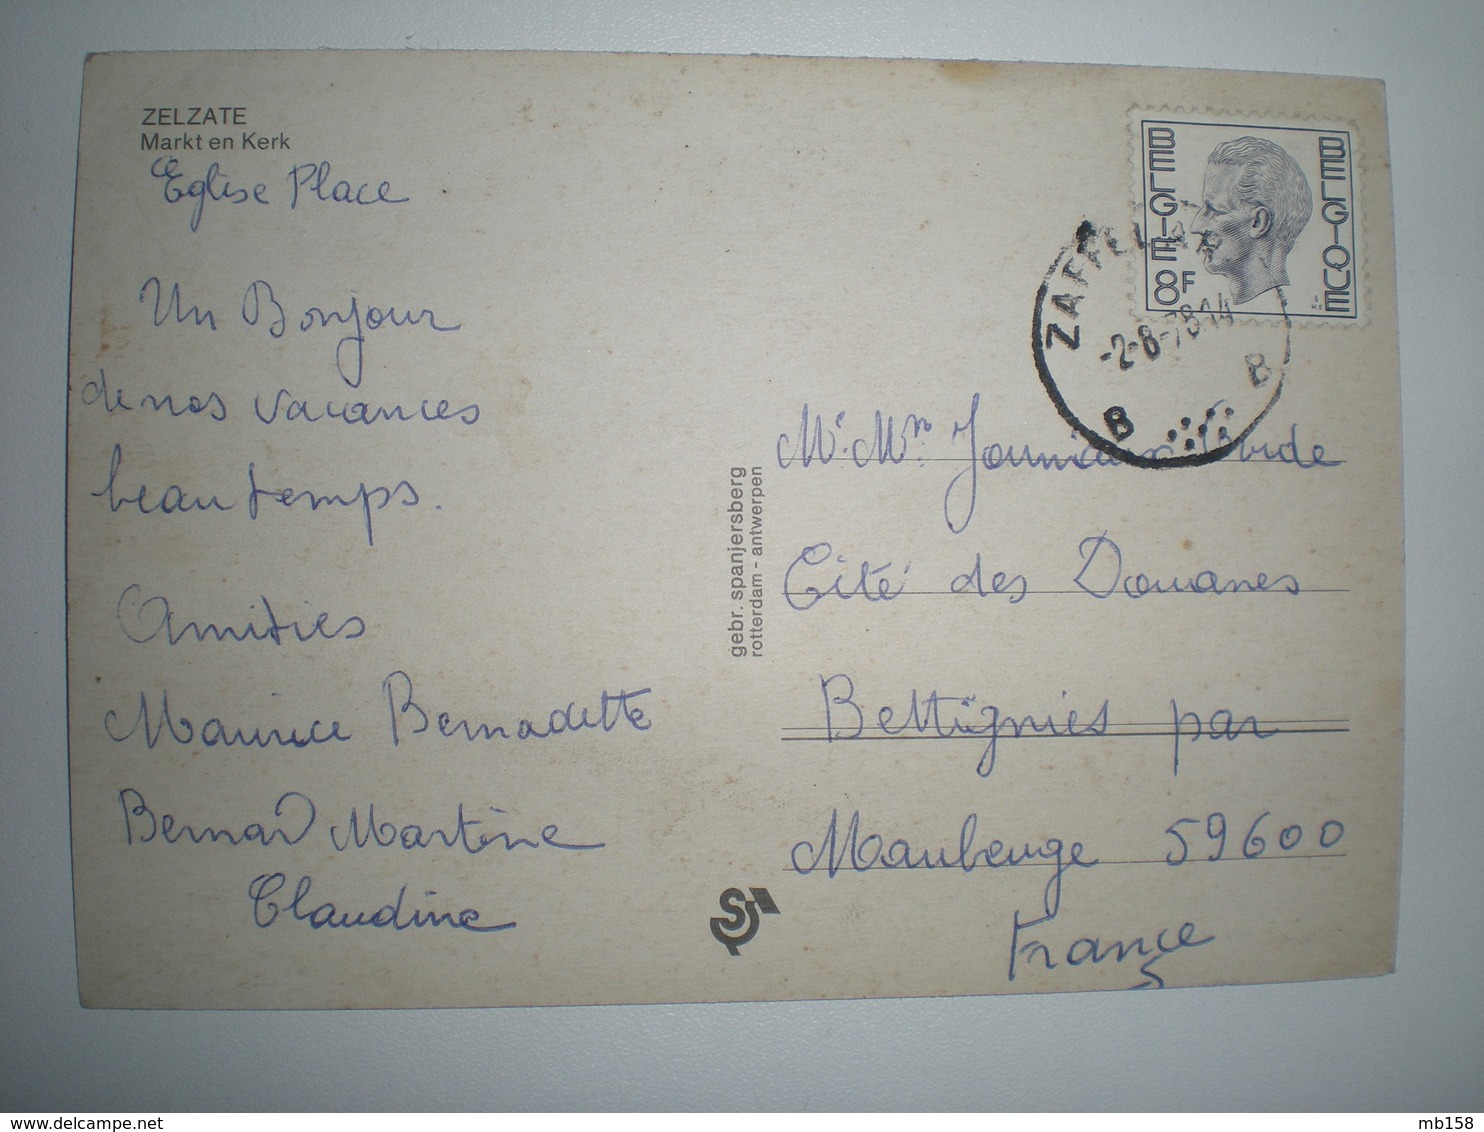 ZELZATE
Markt en Kerk
Eglise Place
Un Bonjour
de nos vacances
beau temps.
Amitiés
Maurice Bernadette
Bernard Martine
Claudine
gebr. spanjersberg
rotterdam - antwerpen
BELGIE 8F BELGIQUE
ZAFFELARE
-2-8-78 14
B B
Mr. Mm
Cité des Douanes
Bettignies par
Maubeuge 59600
France
mb158